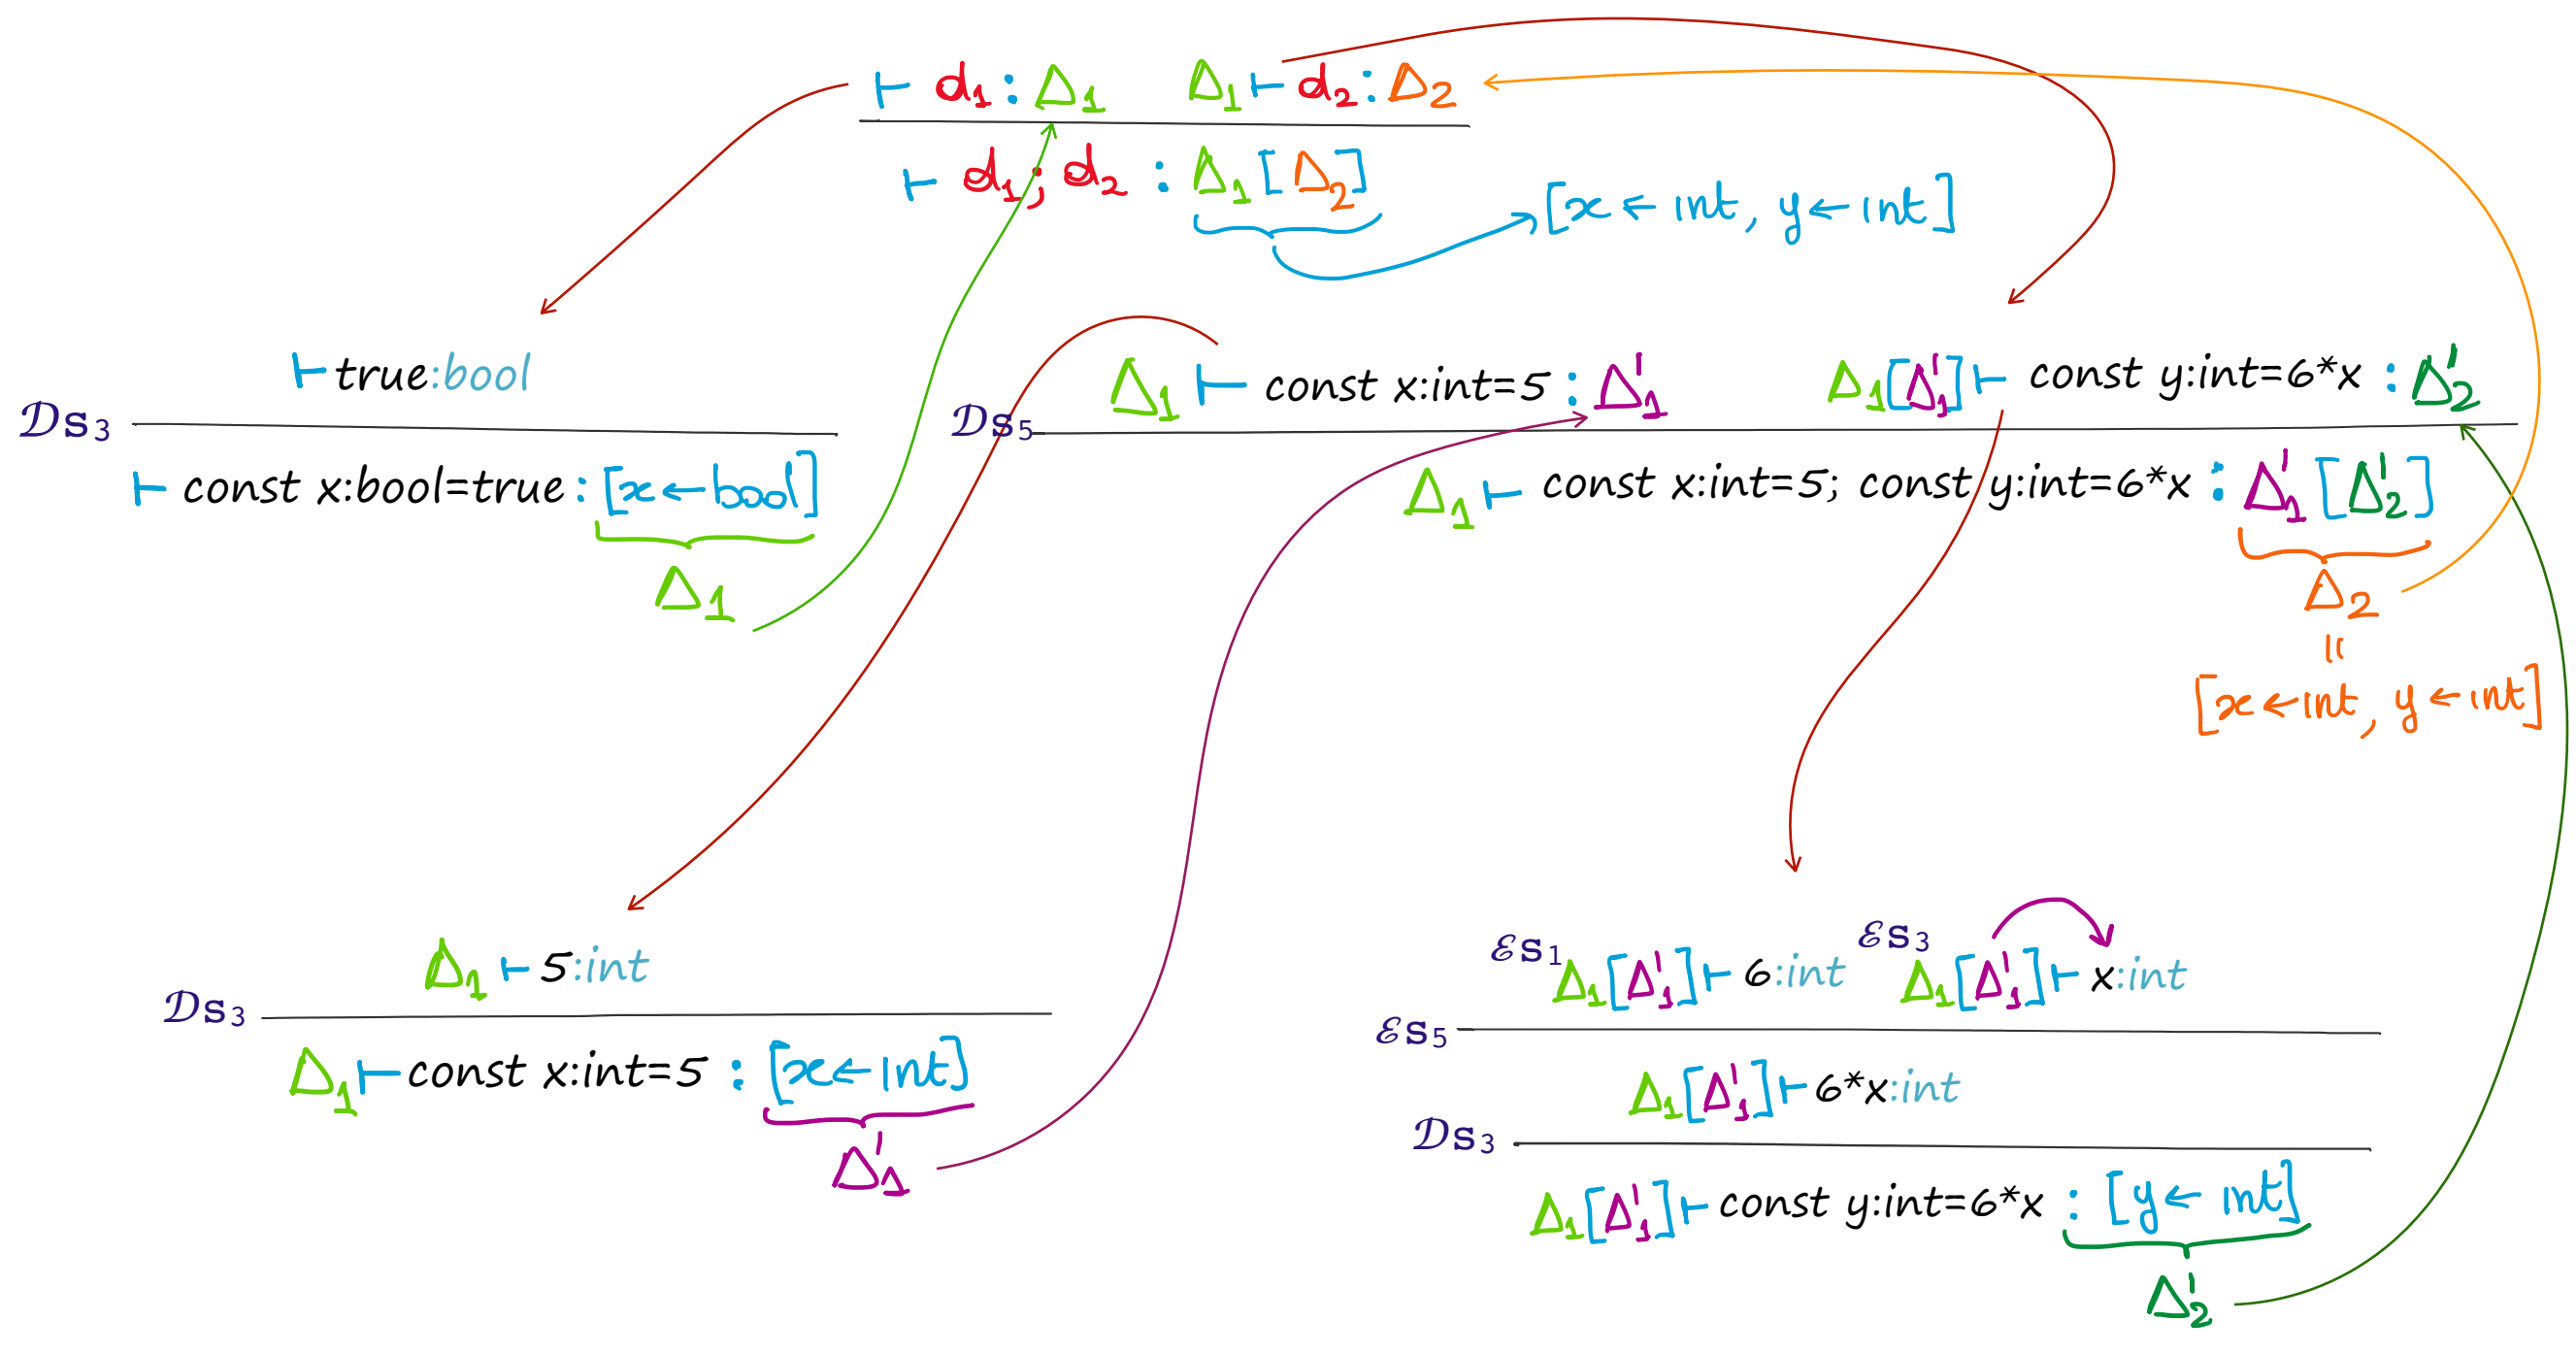 ⊢ d₁ : Δ₁   Δ₁ ⊢ d₂ : Δ₂
⊢ d₁; d₂ : Δ₁[Δ₂]
[x ← int, y ← int]
⊢ true:bool
𝒟s₃
⊢ const x:bool=true : [x ← bool]
Δ₁
Δ₁ ⊢ const x:int=5 : Δ'₁   Δ₁[Δ'₁] ⊢ const y:int=6*x : Δ'₂
𝒟s₅
Δ₁ ⊢ const x:int=5; const y:int=6*x : Δ'₁[Δ'₂]
Δ₂
=
[x ← int, y ← int]
Δ₁ ⊢ 5:int
𝒟s₃
Δ₁ ⊢ const x:int=5 : [x ← int]
Δ'₁
ℰs₁ Δ₁[Δ'₁] ⊢ 6:int   ℰs₃ Δ₁[Δ'₁] ⊢ x:int
ℰs₅
Δ₁[Δ'₁] ⊢ 6*x:int
𝒟s₃
Δ₁[Δ'₁] ⊢ const y:int=6*x : [y ← int]
Δ'₂